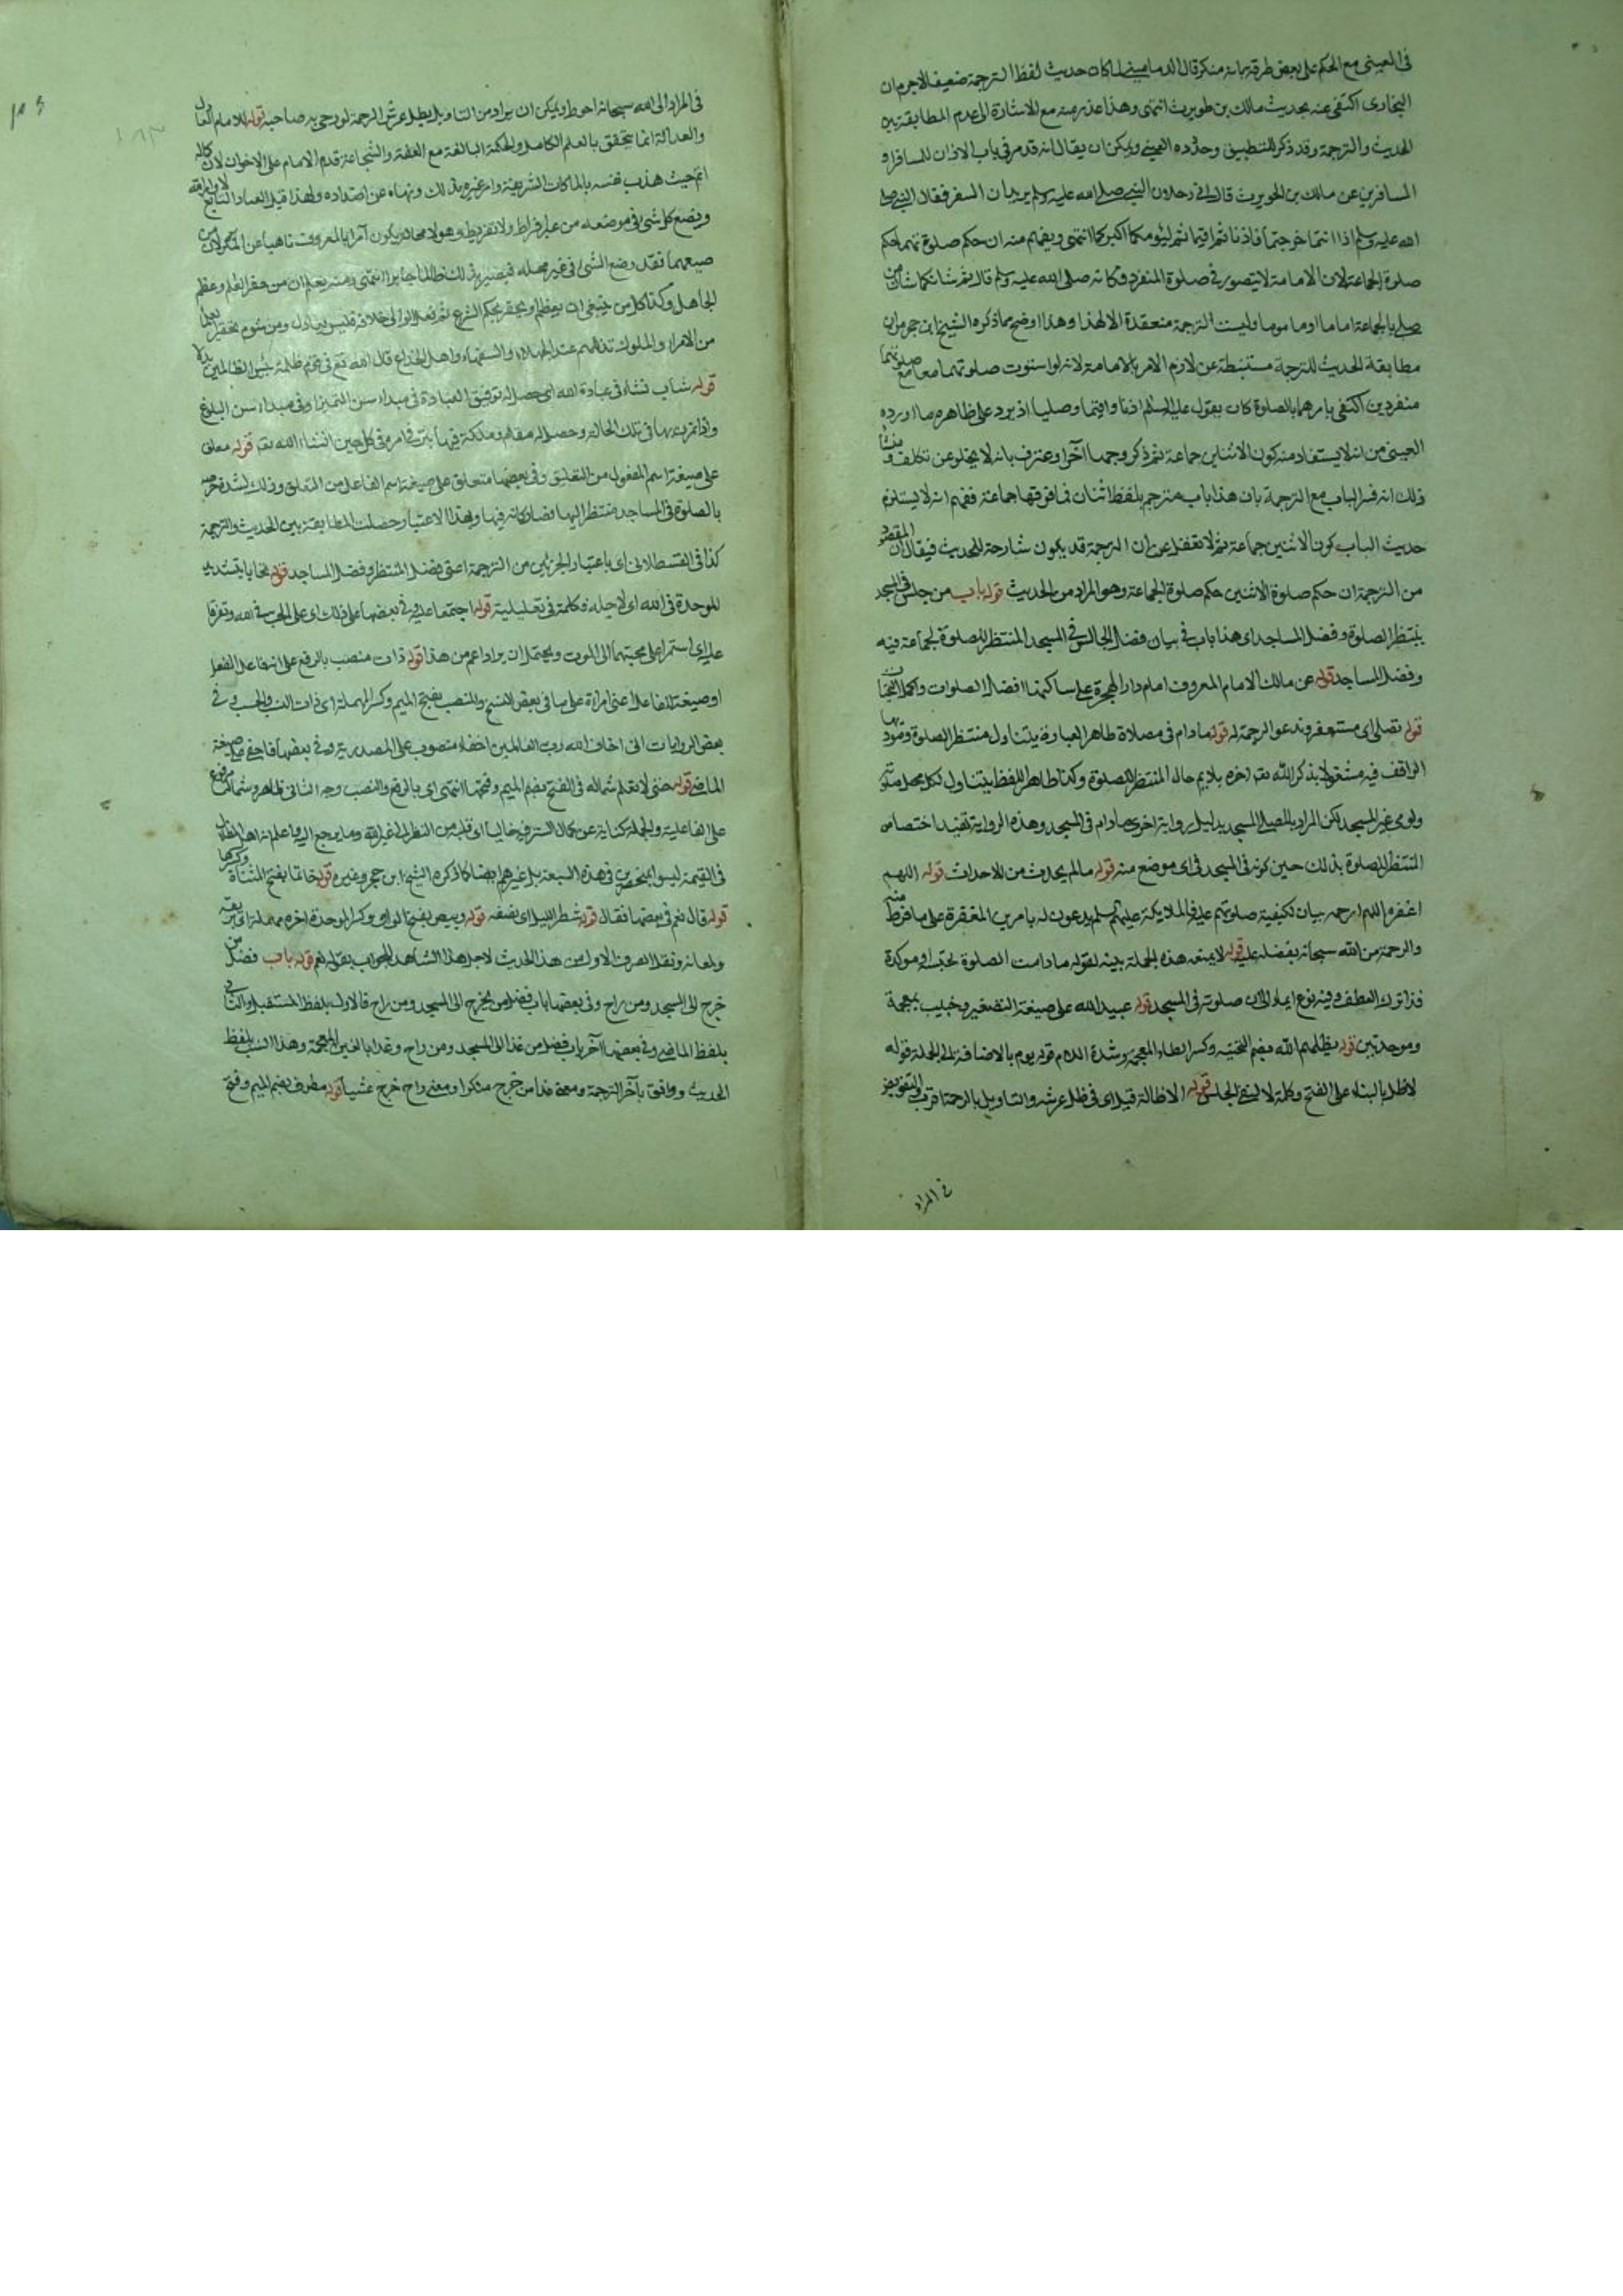 في العيني مع الحكم على بعض طرقه بانه منكر قال الدماميني لما كان حديث لفظ الترجمة ضعيفا لا جرم ان
البخاري اكتفى عنه بحديث مالك بن حويرث انتهى وهذا عذر منه مع الاشارة الى عدم المطابقة بين
الحديث والترجمة وقد ذكر للتطبيق وجه ورده العيني ويمكن ان يقال انه قد مر في باب الاذان للمسافر او
المسافرين عن مالك بن الحويرث قال اتى رجلان النبي صلى الله عليه وسلم يريدان السفر فقال النبي صلى
الله عليه وسلم اذا انتما خرجتما فاذنا ثم اقيما ثم ليؤمكما اكبركما انتهى ويفهم منه ان حكم صلوتهما حكم
صلوة الجماعة لان الامامة لا يتصور في صلوة المنفرد وكانه صلى الله عليه وسلم قال شانكما شان من
صلى بالجماعة اماما او ماموما وليست الترجمة منعقدة الا لهذا وهذا اوضح مما ذكره الشيخ ابن حجر من ان
مطابقة الحديث للترجمة مستنبطة عن لازم الامر بالامامة لانه لو استوت صلوتهما معا مع صلوتهما
منفردين اكتفى بامرهما بالصلوة كان يقول عليه السلم اذنا واقيما وصليا اذ يرد على ظاهره ما اورده
العيني من انه لا يستفاد منه كون الاثنين جماعة ثم ذكر وجها آخر واعترف بانه لا يخلو عن تكلف ومنشأ
ذلك انه فسر الباب مع الترجمة بان هذا باب مترجم بلفظ اثنان فما فوقها جماعة ففهم انه لا يستلزم
حديث الباب كون الاثنين جماعة ثم لا تغفل عن ان الترجمة قد يكون شارحة للحديث فيقال ان المقصود
من الترجمة ان حكم صلوة الاثنين حكم صلوة الجماعة وهو المراد من الحديث قوله باب من جلس في المسجد
ينتظر الصلوة وفضل المساجد اي هذا باب في بيان فضل الجالس في المسجد المنتظر للصلوة لجماعة فيه
وفضل المساجد قوله عن مالك الامام المعروف امام دار الهجرة على ساكنها افضل الصلوات واكمل التحيات
قوله تصلي اي مستغفر وتدعو الرحمة له قوله ما دام في مصلاه ظاهر العبارة يتناول منتظر الصلوة وقعود
الواقف فيه مشغولا بذكر الله الى آخره بلا يم حال المنتظر للصلوة وكذا ظاهر اللفظ يتناول لكل محل صلوته
ولو في غير المسجد لكن المراد بالمصلى المسجد بدليل رواية اخرى ما دام في المسجد وهذه الرواية تفيد اختصاص
المنتظر للصلوة بذلك حين كونه في المسجد في اي موضع منه قوله ما لم يحدث من الاحداث قوله اللهم
اغفر له اللهم ارحمه بيان لكيفية صلوتهم عليه فالملايكة عليهم السلم يدعون له بامرين المغفرة على ما فرط منه
والرحمة من الله سبحانه بفضله عليه قوله لا يمنعه هذه الجملة بينه لقوله ما دامت الصلوة تحبسه او موكدة
فلذا ترك العطف وفيه نوع ايماء الى ان صلوته في المسجد قوله عبيد الله على صيغة التصغير وخبيب بمعجمة
وموحدتين قوله يظلهم الله بضم التحتية وكسر الظاء المعجمة وشدة اللام قوله يوم بالاضافة الى الجملة قوله
لا ظل بالبناء على الفتح وكلمة لا لنفي الجنس قوله الا ظله قيل اي في ظل عرشه والتاويل بالرحمة اقرب والتفويض
في المراد
في المراد الى الله سبحانه احوط ويمكن ان يراد من التاويل بظل عرش الرحمة قوله الامام العادل
والعدالة انما يتحقق بالعلم الكامل والحكمة البالغة مع العفة والشجاعة قدم الامام على الاخوان لان كماله
اتم حيث هذب نفسه بالملكات الشريفة وامر غيره بذلك ونهاه عن اضداده ولهذا قيل العادل التابع لاوامر الله
ويضع كل شيء في موضعه من غير افراط ولا تفريط وهو لا محالة يكون آمرا بالمعروف ناهيا عن المنكر لان من
ضيعهما فقد وضع الشيء في غير محله فيصير بذلك ظالما جايرا انتهى ومنه يعلم ان من حقر العلم وعظم
الجاهل وكذا كل من ينبغي ان يعظم او يحقر بحكم الشرع ثم فعل الوالي خلافه فليس بعادل
من الامراء والملوك عند الجهلاء والسفهاء واهل الخداع قال الله بئس للظالمين بدلا
قوله شاب نشأ في عبادة الله اي حصل له توفيق العبادة في مبداء سن التميز او في مبداء سن البلوغ
واذا تمرن بها في تلك الحالة وحصل له مقام وملكة فيها في كل حين انشاء الله تعالى قوله معلق
على صيغة اسم المفعول من التعليق وفي بعضها متعلق على صيغة اسم الفاعل من التعلق وذلك لشدة حرصه
بالصلوة في المساجد منتظرا اليها فصار كانه فيها وبهذا الاعتبار حصلت المطابقة بين الحديث والترجمة
كذا في القسطلاني اي باعتبار الجزئين من الترجمة اعني فضل المنتظر وفضل المساجد قوله تحابا بتشديد
الموحدة في الله اي لاجله فكلمة في تعليلية قوله اجتمعا عليه وفي بعضها على ذلك اي على الحب في الله وتفرقا
عليه اي استمرا على محبتهما الى الموت ويحتمل ان يراد اعم من هذا قوله ذات منصب بالرفع على انها فاعل الفعل
او صيغة الفاعل اعني امراة على ما في بعض النسخ والمنصب بفتح الميم وكسر المهملة اي ذات النسب والحسب وفي
بعض الروايات اني اخاف الله رب العالمين اخفاء منصوب على المصدرية وفي بعضها فاخفى على صيغة
الماضي قوله حتى لا تعلم شماله في الفتح بضم الميم وفتحها انتهى اي بالرفع والنصب وجه الثاني ظاهر وشماله مرفوع
على الفاعلية والجملة كناية عن كمال الستر فيه خاليا اي قلبه من النظر الى غير الله وما يرجع اليه واعلم انه اهل الظلال
في القيمة ليسوا بمنحصرين في هذه السبعة بل غيرهم ايضا كما ذكره الشيخ ابن حجر وغيره قوله خاتما بفتح المثناة وكسرها
قوله قال نعم في بعضها فقال قوله شطر الليل اي نصفه قوله وبيص بفتح الواو وكسر الموحدة آخره مهملة اي بريقه
ولمعانه ونقل المصنف الاول من هذا الحديث لاجل هذا الشاهد للجواب بقوله نعم قوله باب فضل من
خرج الى المسجد ومن راح وفي بعضها باب فضل من يخرج الى المسجد ومن راح فالاول بلفظ المستقبل والثاني
بلفظ الماضي وفي بعضها آخر باب فضل من غدا الى المسجد ومن راح وغدا بالغين المعجمة وهذا انسب بلفظ
الحديث ووافق بآخر الترجمة ومعنى غدا من خرج مبكرا ومعنى راح خرج عشيا قوله مطرف بضم الميم وفتح